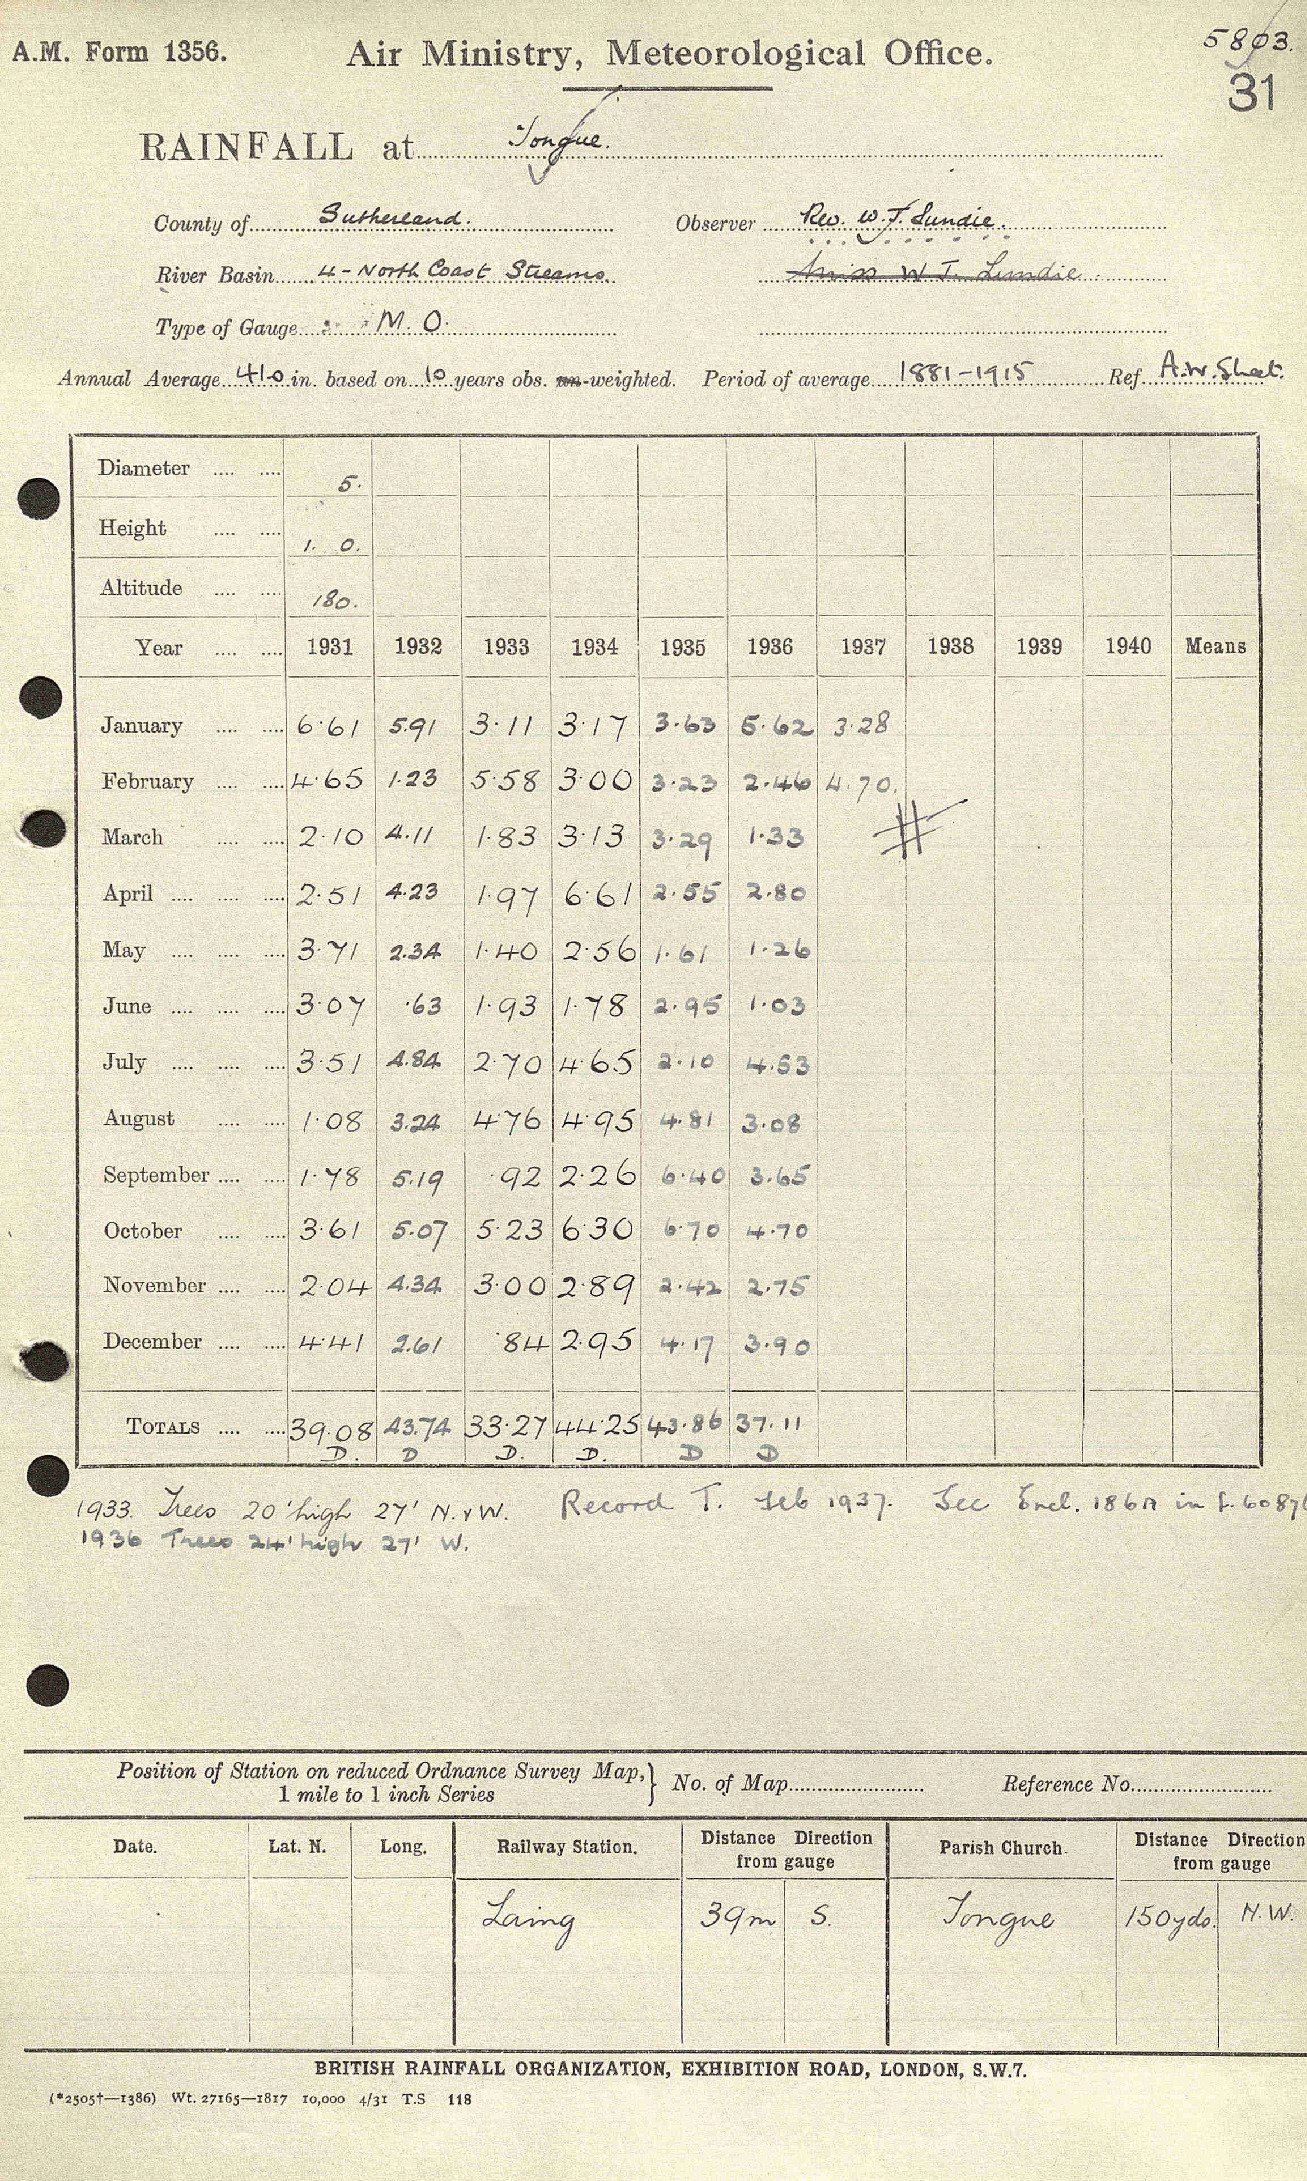 A.M. Form 1356. Air Ministry, Meteorological Office. 5803.
31
RAINFALL at Tongue.
County of Sutherland. Observer Rev. W. J. Lundie.
River Basin 4 - North Coast Streams. Miss W J. Lundie
Type of Gauge M. O.
Annual Average 41.0 in. based on 10 years obs. un-weighted. Period of average 1881-1915 Ref. A.W. Sheet.
Diameter .... .... 5.
Height .... .... 1. 0.
Altitude .... .... 180.
Year .... .... 1931 1932 1933 1934 1935 1936 1937 1938 1939 1940 Means
January .... .... 6.61 5.91 3.11 3.17 3.63 5.62 3.28
February .... .... 4.65 1.23 5.58 3.00 3.23 2.46 4.70.
March .... .... 2.10 4.11 1.83 3.13 3.29 1.33 #
April .... .... .... 2.51 4.23 1.97 6.61 2.55 2.80
May .... .... .... 3.71 2.34 1.40 2.56 1.61 1.26
June .... .... .... 3.07 .63 1.93 1.78 2.95 1.03
July .... .... .... 3.51 4.84 2.70 4.65 2.10 4.53
August .... .... 1.08 3.24 4.76 4.95 4.81 3.08
September .... .... 1.78 5.19 .92 2.26 6.40 3.65
October .... .... 3.61 5.07 5.23 6.30 6.70 4.70
November .... .... 2.04 4.34 3.00 2.89 2.42 2.75
December .... .... 4.41 2.61 .84 2.95 4.17 3.90
TOTALS .... .... 39.08 43.74 33.27 44.25 43.86 37.11
D. D D. D. D D
1933. Trees 20' high 27' N. & W. Record T. Feb 1937. See Encl. 186A in f. 6087
1936 Trees 24' high 27' W.
Position of Station on reduced Ordnance Survey Map, } No. of Map Reference No.
1 mile to 1 inch Series
Date. Lat. N. Long. Railway Station. Distance Direction from gauge Parish Church. Distance Direction from gauge
Laing 39m S. Tongue 150yds. N.W.
BRITISH RAINFALL ORGANIZATION, EXHIBITION ROAD, LONDON, S.W.7.
(*2505†—1386) Wt. 27165—1817 10,000 4/31 T.S 118